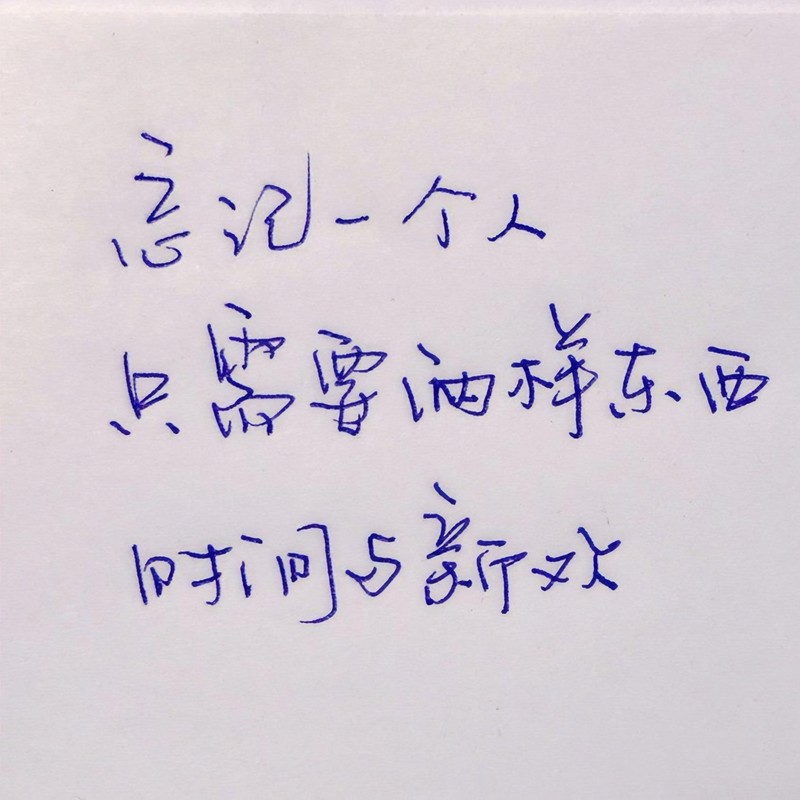 忘记一个人
只需要两样东西
时间与新欢